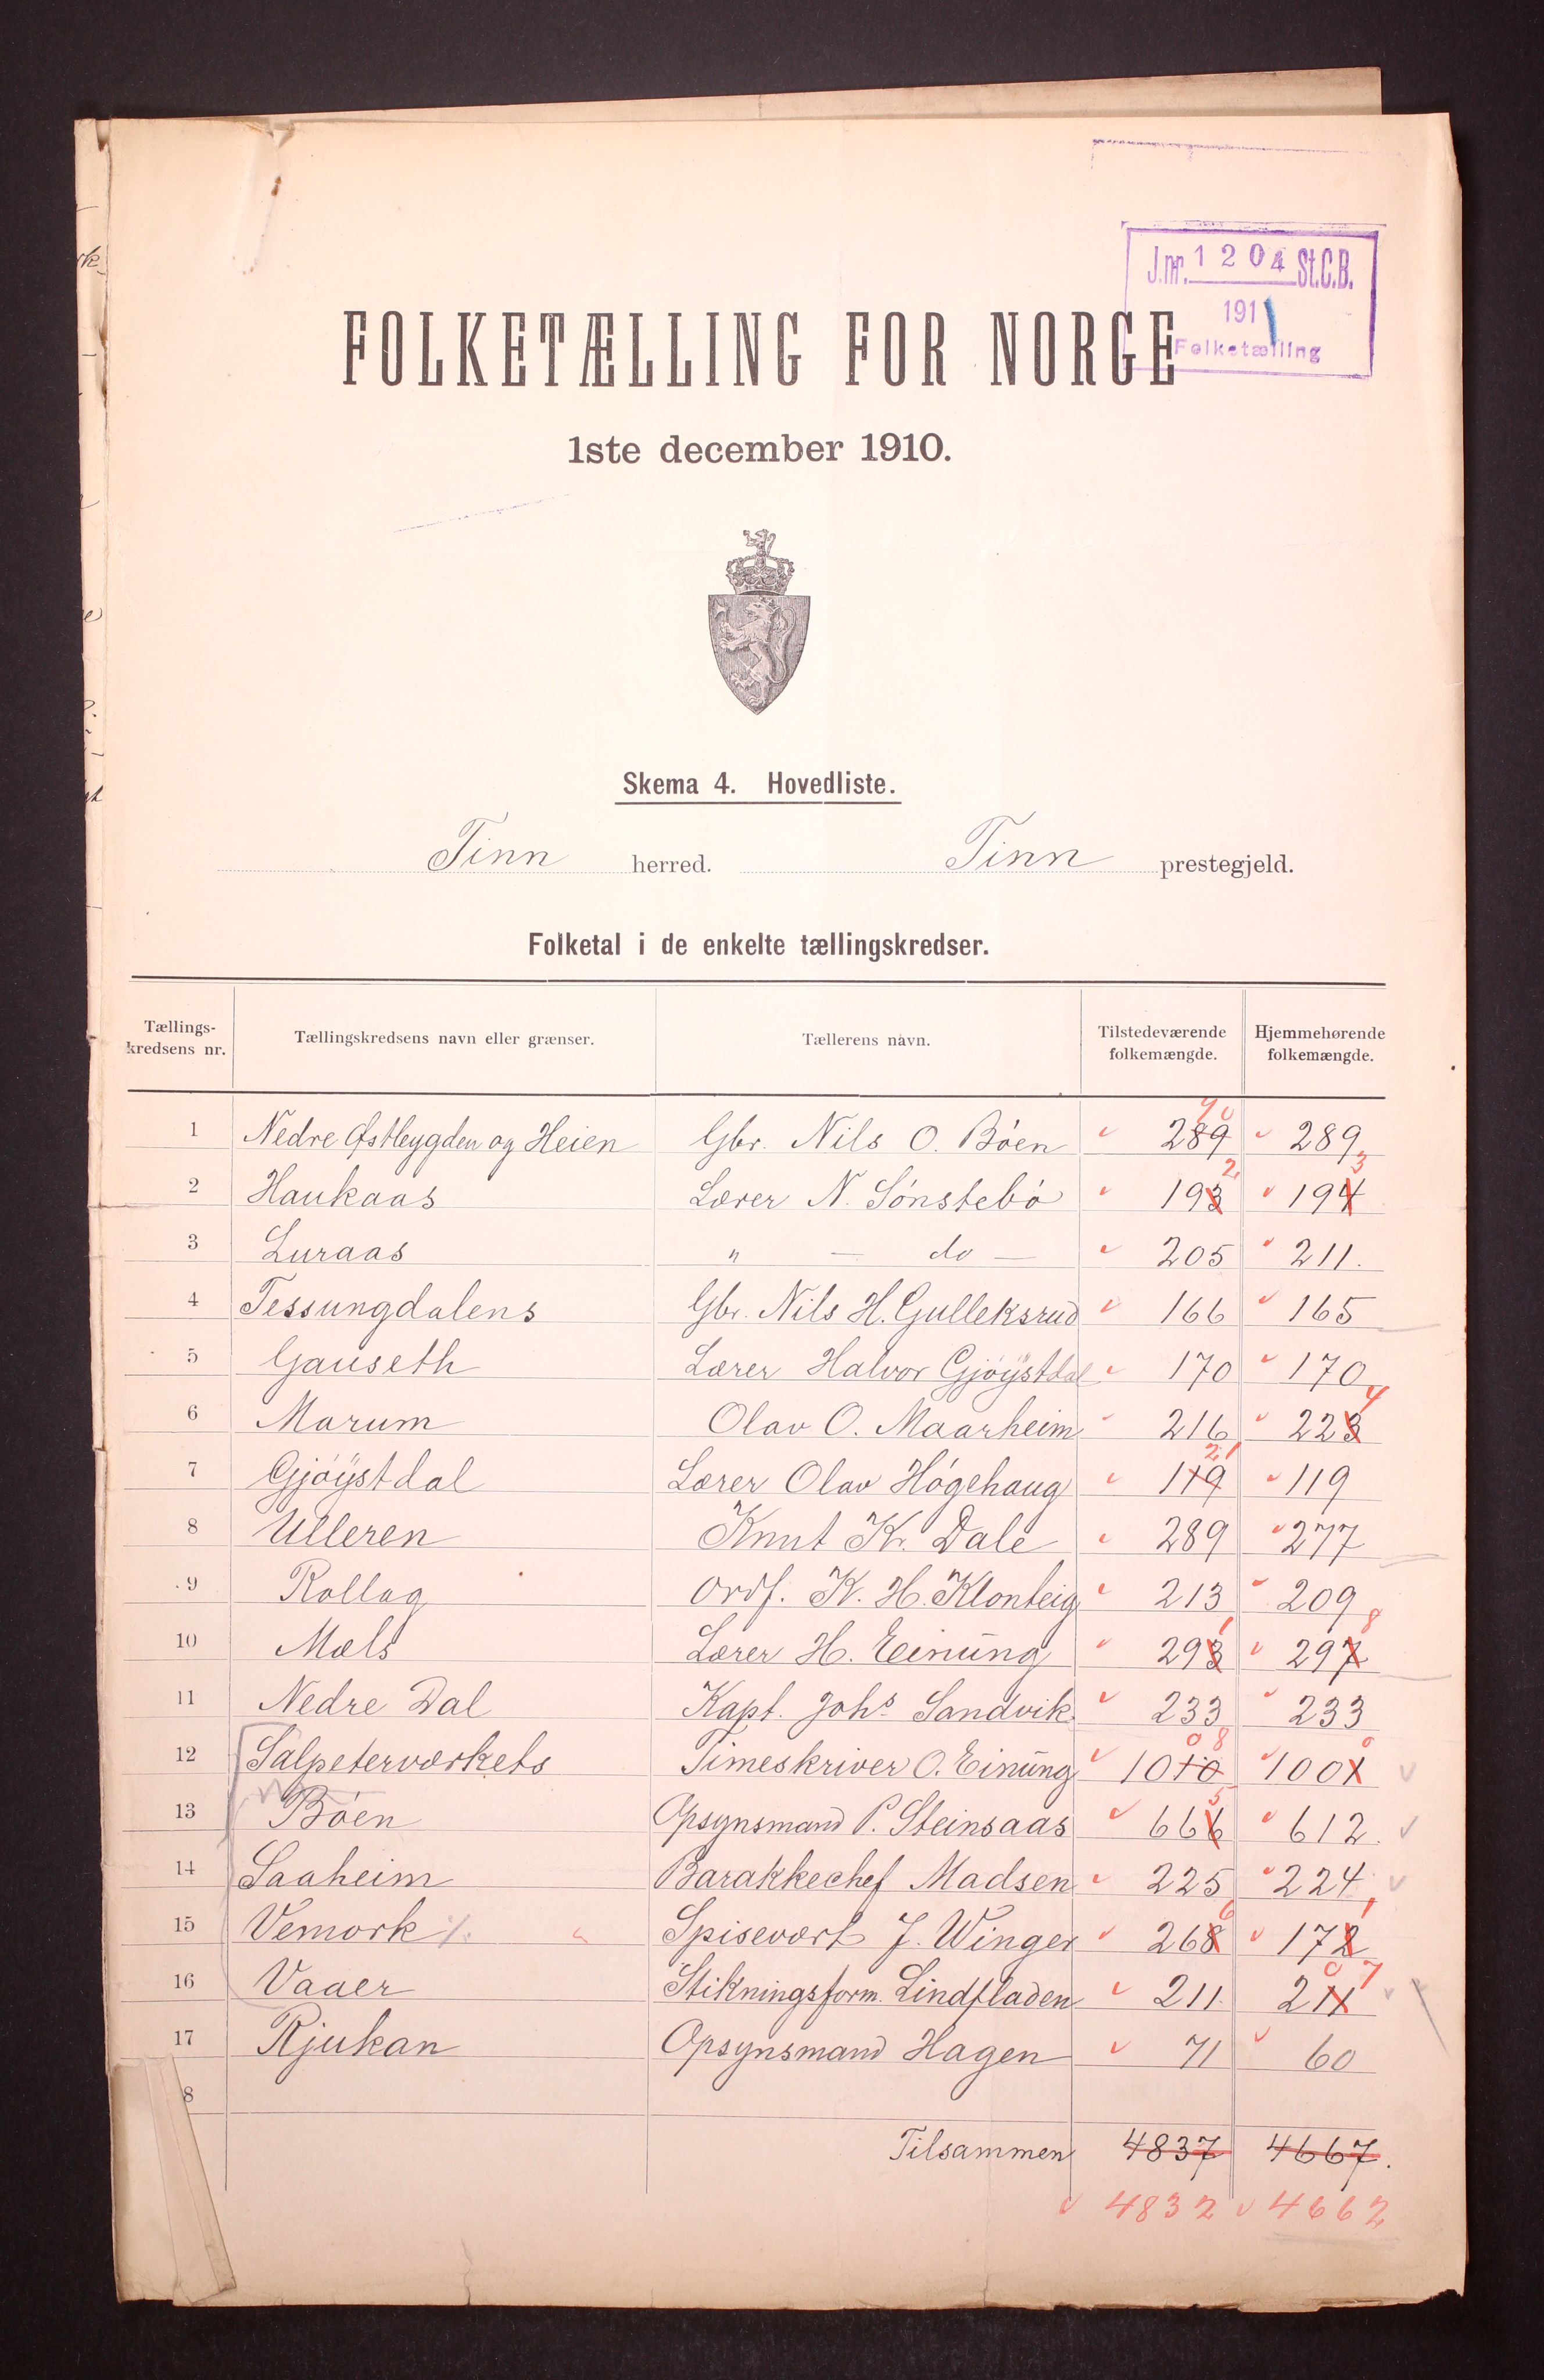 J.nr. 1204 St.C.B.
1911
Folketælling
FOLKETÆLLING FOR NORGE
1ste december 1910.
Skema 4. Hovedliste.
Tinn herred. Tinn prestegjeld.
Folketal i de enkelte tællingskredser.
Tællings-kredsens nr. Tællingskredsens navn eller grænser. Tællerens navn. Tilstedeværende folkemængde. Hjemmehørende folkemængde.
1 Nedre Østbygden og Heien Gbr. Nils O. Böen 289 90 289
2 Haukaas Lærer N. Sönstebö 193 2 194 3
3 Luraas " — do — 205 211.
4 Tessungdalens Gbr. Nils H. Gulleksrud 166 165
5 Gauseth Lærer Halvor Gjöystdal 170 170
6 Marum Olav O. Maarheim 216 223 4
7 Gjöystdal Lærer Olav Högehaug 119 21 119
8 Ulleren Knut K. Dale 289 277
9 Rollag Ordf. K. H. Klonteig 213 209
10 Mæls Lærer H. Einung 293 1 297 8
11 Nedre Dal Kapt. Johs Sandvik 233 233
12 Salpeterværkets Timeskriver O. Einung 1010 08 1001 0
13 Böen Opsynsmand P. Steinsaas 666 5 612.
14 Saaheim Barakkechef Madsen 225 224
15 Vemork %. Spisevært J. Winger 268 6 172 1
16 Vaaer Stikningsform. Lindfladen 211. 211 07
17 Rjukan Opsynsmand Hagen 71 60
8
Tilsammen 4837 4667.
4832 4662